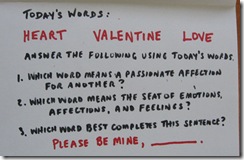 TODAY'S WORDS:
HEART VALENTINE LOVE
ANSWER THE FOLLOWING USING TODAY'S WORDS.
1. WHICH WORD MEANS A PASSIONATE AFFECTION
FOR ANOTHER?
2. WHICH WORD MEANS THE SEAT OF EMOTIONS,
AFFECTIONS, AND FEELINGS?
3. WHICH WORD BEST COMPLETES THIS SENTENCE?
PLEASE BE MINE, ______.